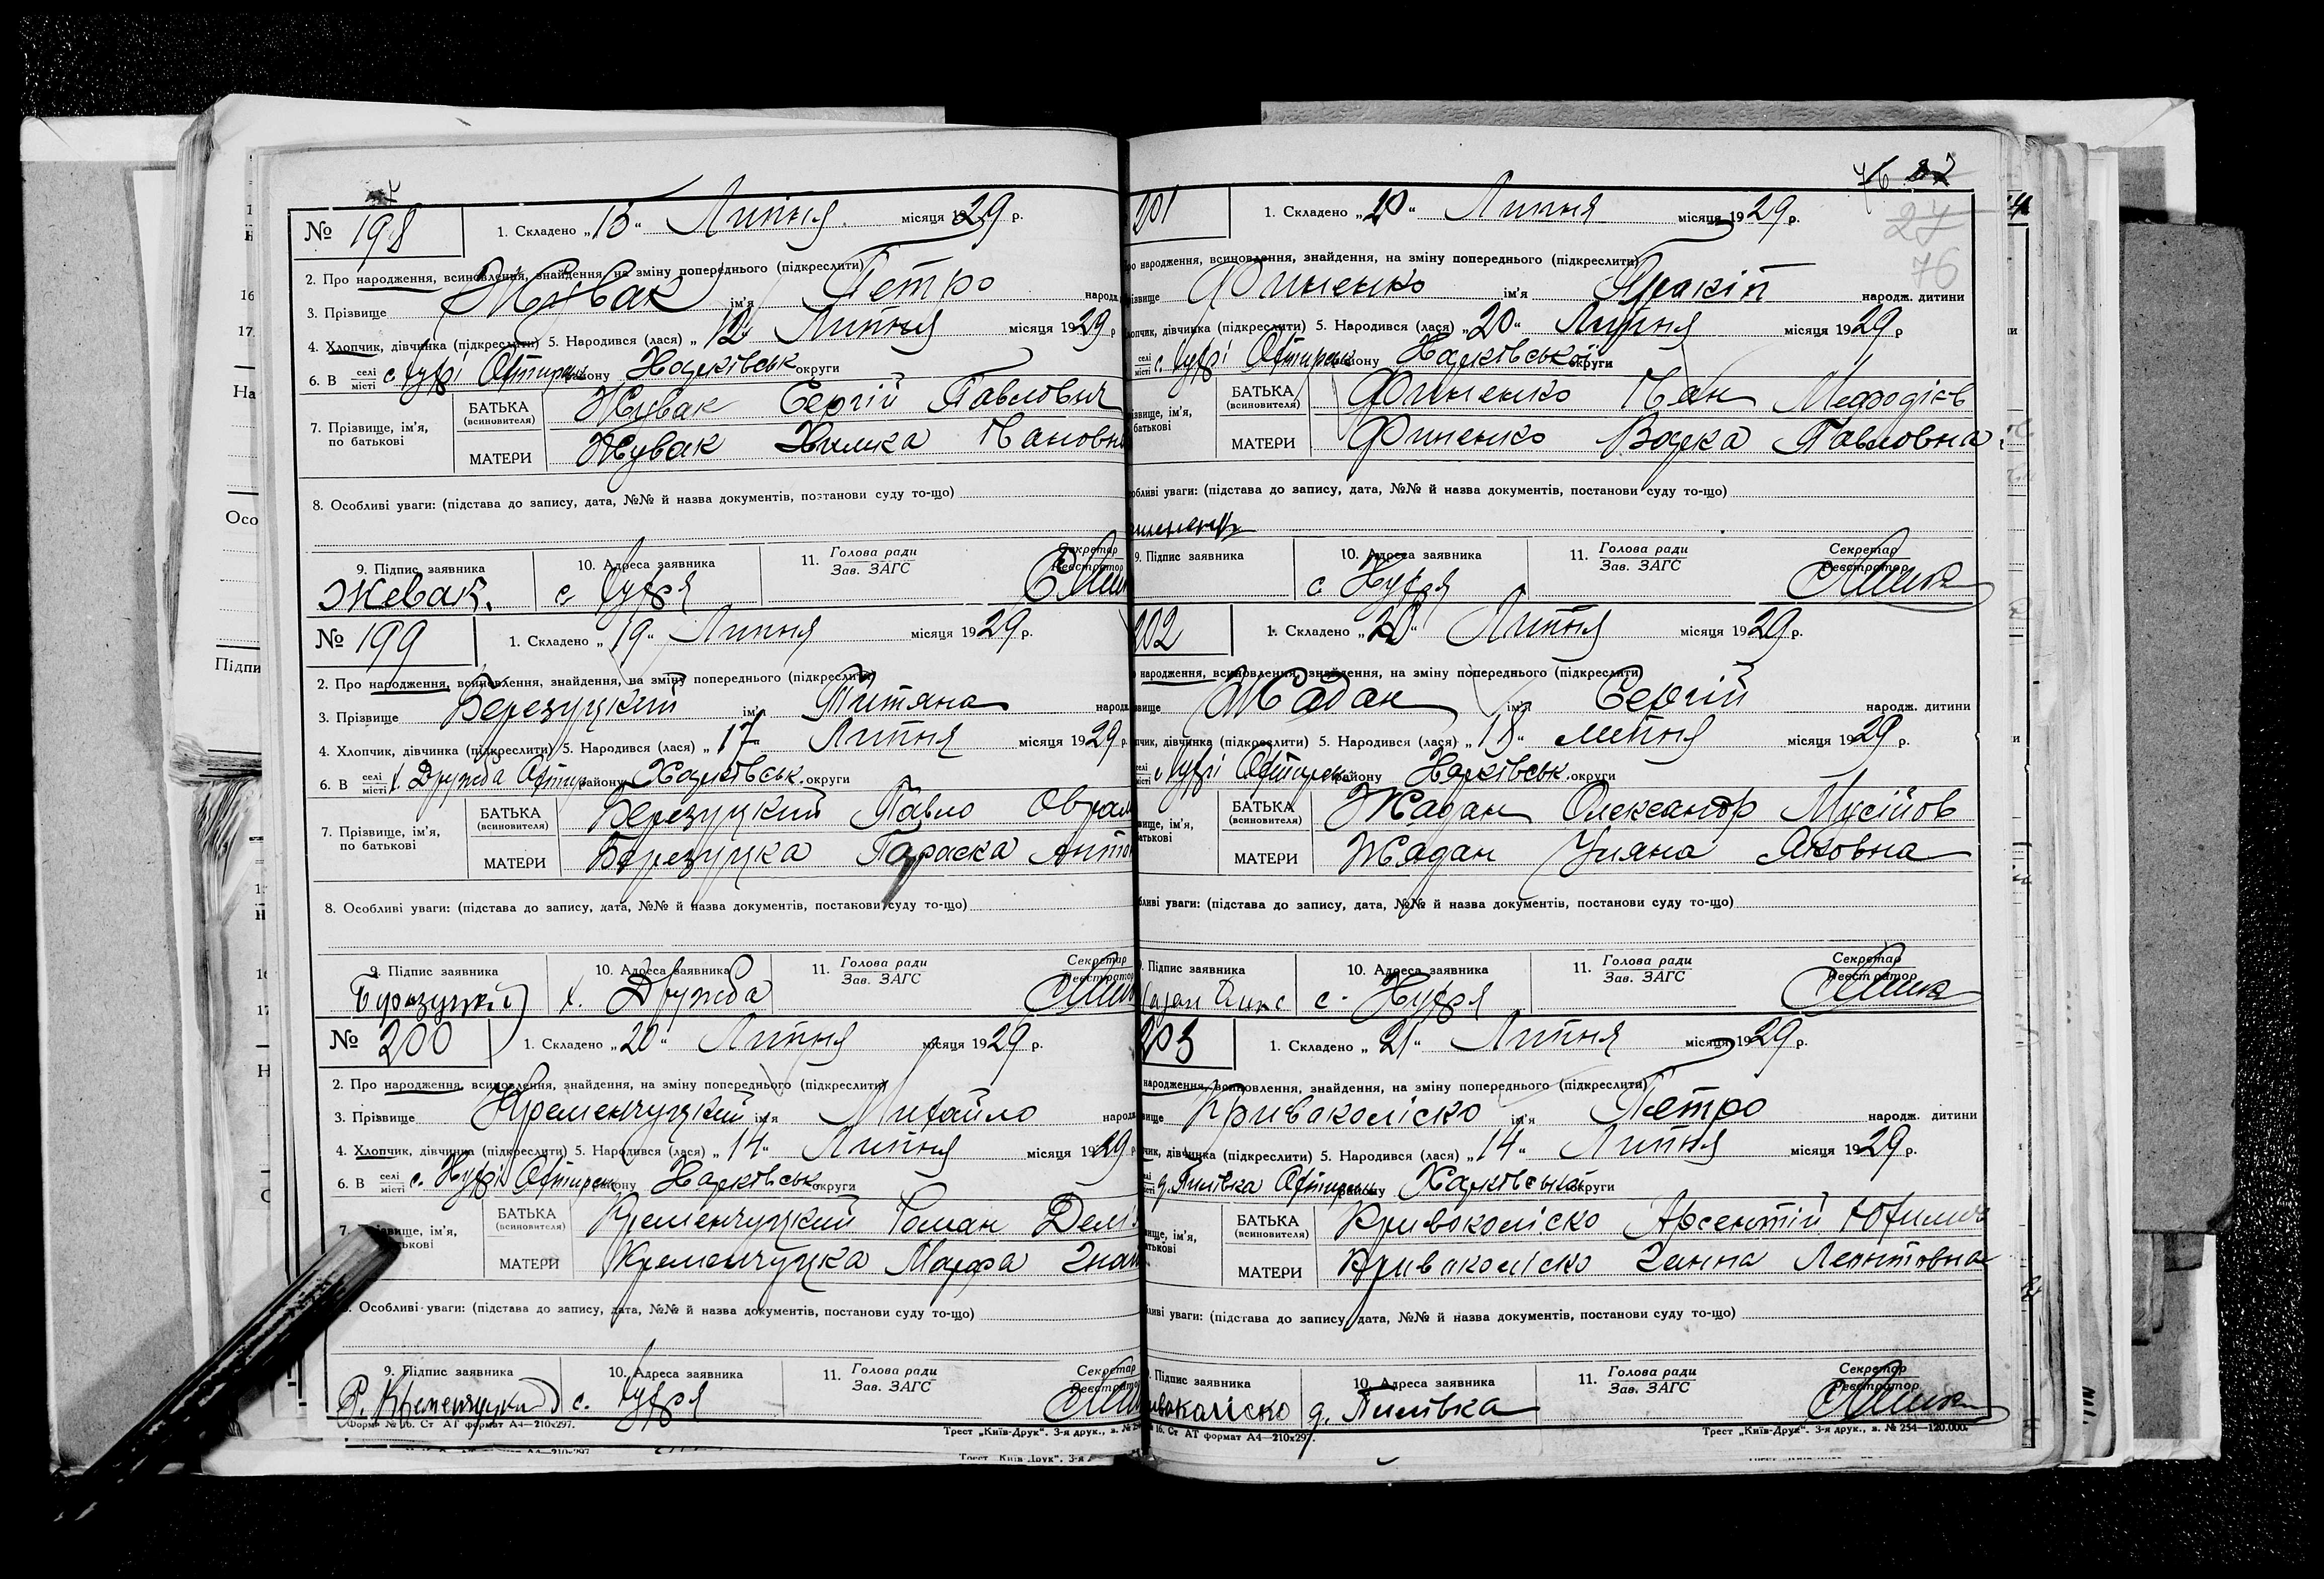 № 198
1. Складено „ 15 “ Липня місяця 1929 р.
2. Про народження, всиновлення, знайдення, на зміну попереднього (підкреслити)
3. Прізвище Жувак ім'я Петро народж.
4. Хлопчик, дівчинка (підкреслити) 5. Народився (лася) „ 12 Липня місяця 1929 р
6. В селі місті с. Охтирськ району Харківськ округи
7. Прізвище, ім'я, по батькові
БАТЬКА (всиновителя) Жувак Сергій Павлович
МАТЕРИ Жувак Химка
8. Особливі уваги: (підстава до запису, дата, №№ й назва документів, постанови суду то-що)
9. Підпис заявника 10. Адреса заявника 11. Голова ради Зав. ЗАГС Секретар Реєстратор
Жевак. с
№ 199
1. Складено „ 19 “ Липня місяця 1929 р.
2. Про народження, всиновлення, знайдення, на зміну попереднього (підкреслити)
3. Прізвище Березуцкий ім'я Титяна народж.
4. Хлопчик, дівчинка (підкреслити) 5. Народився (лася) „ 17 “ Липня місяця 1929 р.
6. В селі місті х. Дружба Охтир району Харківськ. округи
7. Прізвище, ім'я, по батькові
БАТЬКА (всиновителя) Березуцкий Павло Оврам
МАТЕРИ Березуцка Параска Анто
8. Особливі уваги: (підстава до запису, дата, №№ й назва документів, постакови суду то-що)
9. Підпис заявника 10. Адреса заявника 11. Голова ради Зав. ЗАГС Секретар Реєстратор
х. Дружба
№ 200
1. Складено „ 20 “ Липня місяця 1929 р.
2. Про народження, всиновлення, знайдення, на зміну попереднього (підкреслити)
3. Прізвище Кременчуцкий ім'я Михайло народж
4. Хлопчик, дівчинка (підкреслити) 5. Народився (лася) „ 14 “ Липня місяця 1929 р
6. В селі місті с. Охтирськ району Харківськ. округи
7. вище, ім'я, тькові
БАТЬКА (всиновителя) Кременчуцкий Роман Дем
МАТЕРИ Кременчуцка Марфа
Особливі уваги: (підстава до запису, дата, №№ й назва документів, постанови суду то-що)
9. Підпис заявника 10. Адреса заявника 11. Голова ради Зав. ЗАГС Секретар
Р. Кременчуцки с.
Форма № 16. Ст АТ формат А4—210х297.
Трест „Київ-Друк“. 3-я друк., з. №
76
27
76
201
1. Складено „ 20 “ Липня місяця 1929 р.
ро народження, всиновлення, знайдення, на зміну попереднього (підкреслити)
різвище Финенко ім'я Пракіп народж. дитини
лопчик, дівчинка (підкреслити) 5. Народився (лася) „ 20 “ Липня місяця 1929 р
селі місті с. Охтирськ району Харківської округи
різвище, ім'я, батькові
БАТЬКА (всиновителя) Финенко Іван Мефодієв
МАТЕРИ Финенко Варка Павловна
обливі уваги: (підстава до запису, дата, №№ й назва документів, постанови суду то-що)
9. Підпис заявника 10. Адреса заявника 11. Голова ради Зав. ЗАГС Секретар Реєстратор
с
202
1. Складено „ 20 “ Липня місяця 1929 р.
народження, всиновлення, знайдення, на зміну попереднього (підкреслити)
звище Жадан ім'я Сергій народж. дитини
пчик, дівчинка (підкреслити) 5. Народився (лася) „ 18 “ липня місяця 1929 р.
селі місті с Охтирськ району Харківськ. округи
вище, ім'я, батькові
БАТЬКА (всиновителя) Жадан Олександр Мусійов
МАТЕРИ Жадан Уляна Яковна
бливі уваги: (підстава до запису, дата, №№ й назва документів, постанови суду то-що)
. Підпис заявника 10. Адреса заявника 11. Голова ради Зав. ЗАГС Секретар Реєстратор
с.
203
1. Складено „ 21 “ Липня місяця 1929 р.
народження, всиновлення, знайдення, на зміну попереднього (підкреслити)
вище Кривоколіско ім'я Петро народж. дитини
чик, дівчинка (підкреслити) 5. Народився (лася) „ 14 “ Липня місяця 1929 р.
селі місті д. Пилівка Охтирськ району Харківської округи
вище, ім'я, атькові
БАТЬКА (всиновителя) Кривоколіско Арсентій Юхимов
МАТЕРИ Кривоколіско Ганна Леонтовна
ливі уваги: (підстава до запису, дата, №№ й назва документів, постанови суду то-що)
. Підпис заявника 10. Адреса заявника 11. Голова ради Зав. ЗАГС Секретар Реєстратор
ивоколіско д. Пилівка
16. Ст АТ формат А4—210х297.
Трест „Київ-Друк“. 3-я друк., з. № 254—120.000.